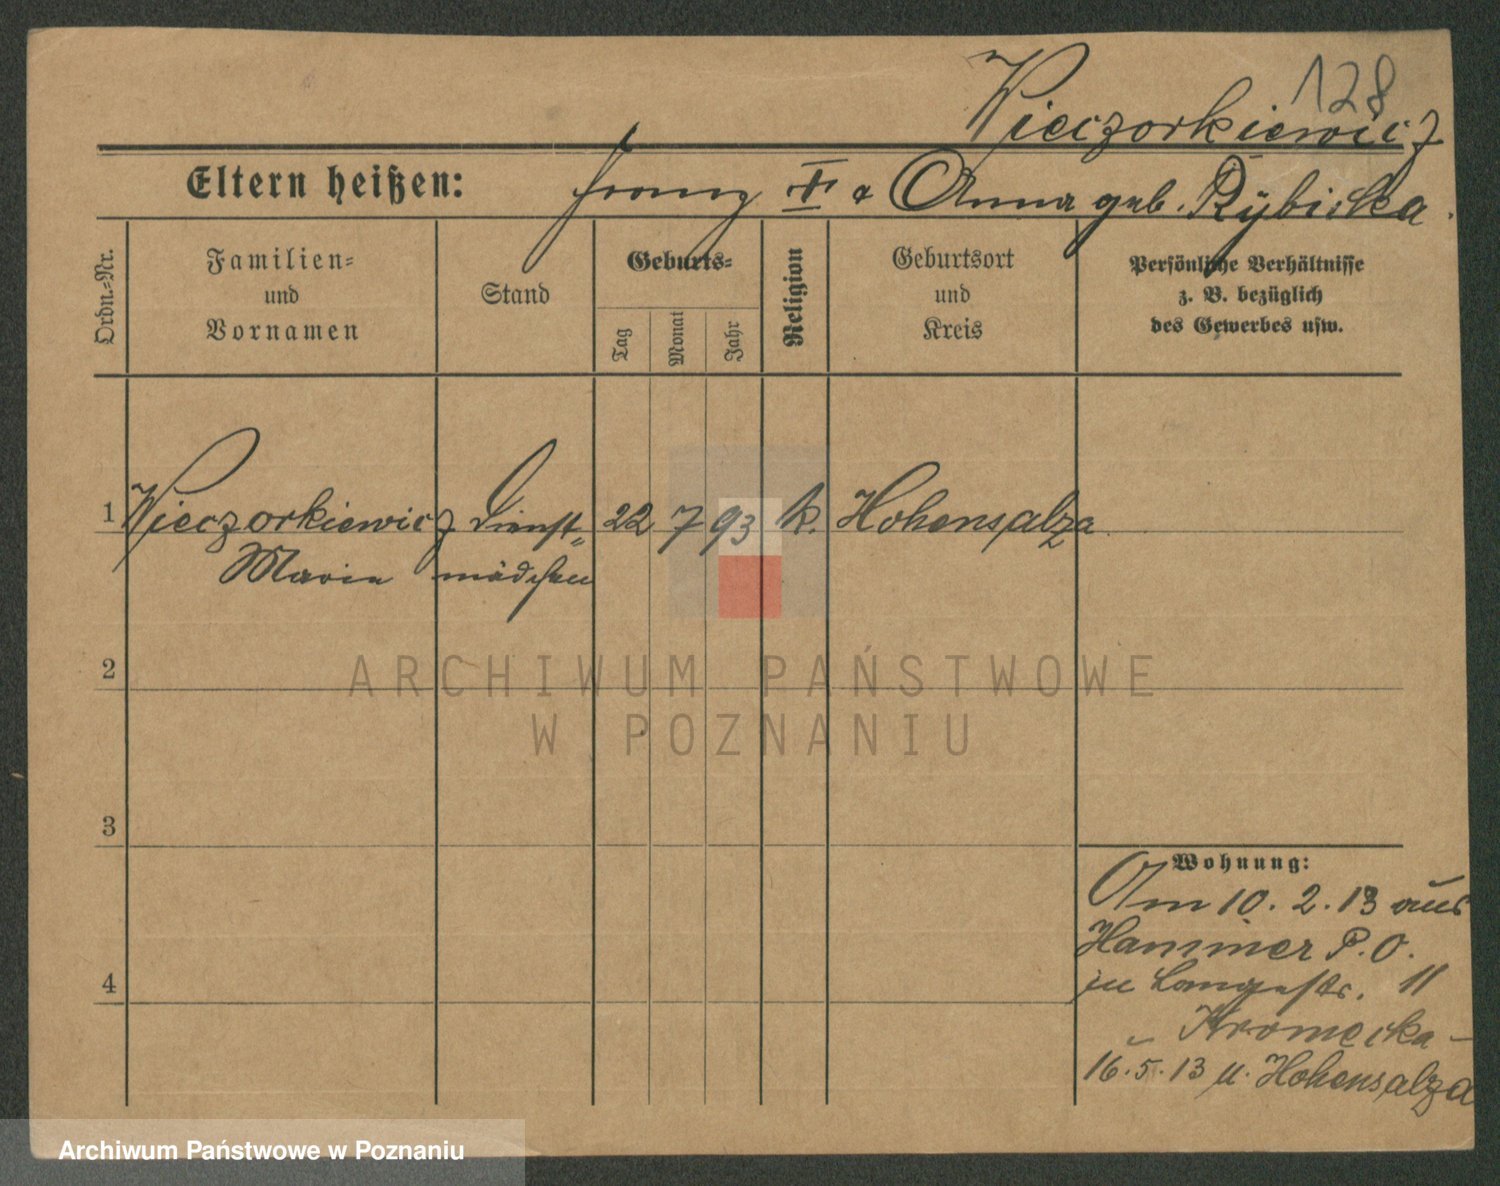 128
Wieczorkiewicz
Eltern heißen: Franz † & Anna geb. Rybicka.
Ordn.-Nr.
Familien-
und
Vornamen
Stand
Geburts-
Tag
Monat
Jahr
Religion
Geburtsort
und
Kreis
Persönliche Verhältnisse
z. B. bezüglich
des Gewerbes usw.
1 Wieczorkiewicz Dienst- 22 7 93 k. Hohensalza
Maria mädchen
2
ARCHIWUM PAŃSTWOWE
W POZNANIU
3
Wohnung:
Am 10. 2. 13 aus
Hammer P. O.
zu Langestr. 11
- Kromecka -
4
16. 5. 13 u. Hohensalza
Archiwum Państwowe w Poznaniu